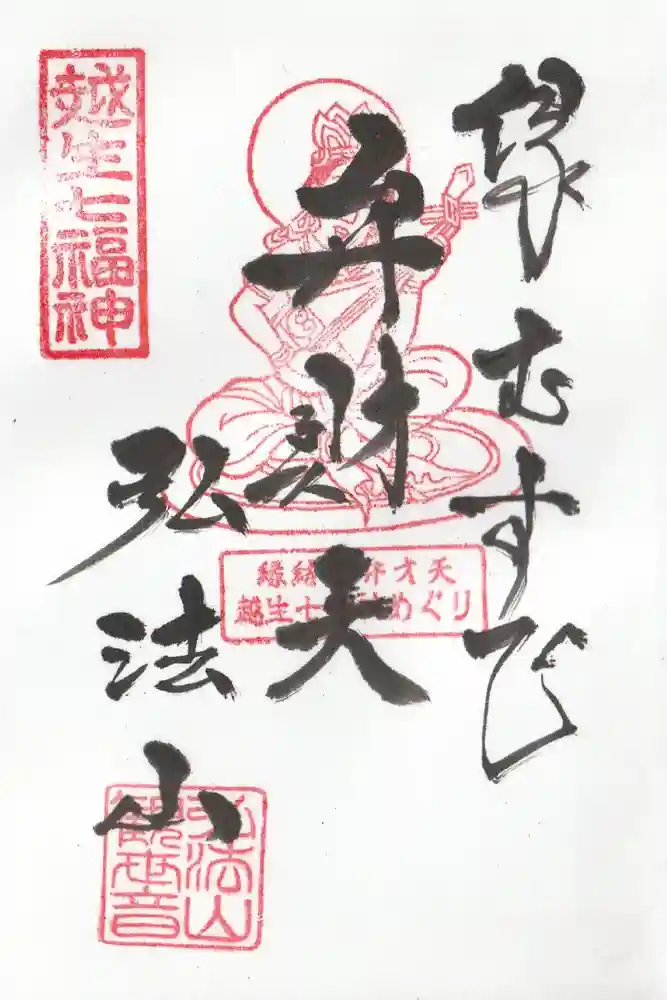 縁むすび
弁財天
弘法山
越生七福神
縁結 弁才天
越生 めぐり
弘法山
觀世音